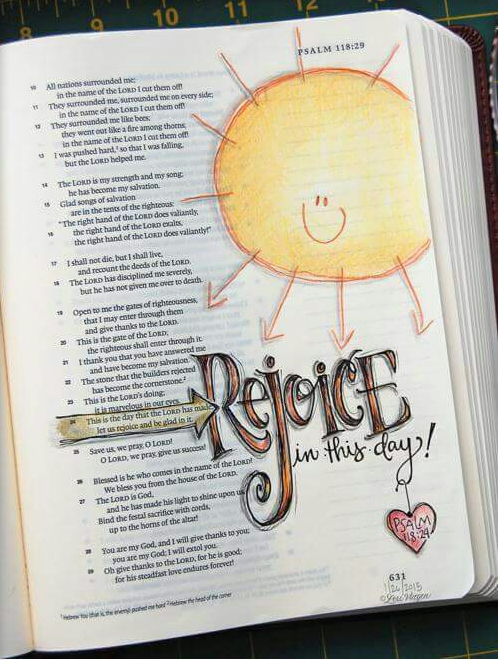 8
9
10
11
PSALM 118:29
10 All nations surrounded me;
in the name of the LORD I cut them off!
11 They surrounded me, surrounded me on every side;
in the name of the LORD I cut them off!
12 They surrounded me like bees;
they went out like a fire among thorns;
in the name of the LORD I cut them off!
13 I was pushed hard,¹ so that I was falling,
but the LORD helped me.
14 The LORD is my strength and my song;
he has become my salvation.
15 Glad songs of salvation
are in the tents of the righteous:
"The right hand of the LORD does valiantly,
16 the right hand of the LORD exalts,
the right hand of the LORD does valiantly!"
17 I shall not die, but I shall live,
and recount the deeds of the LORD.
18 The LORD has disciplined me severely,
but he has not given me over to death.
19 Open to me the gates of righteousness,
that I may enter through them
and give thanks to the LORD.
20 This is the gate of the LORD;
the righteous shall enter through it.
21 I thank you that you have answered me
and have become my salvation.
22 The stone that the builders rejected
has become the cornerstone.²
23 This is the LORD's doing;
it is marvelous in our eyes.
24 This is the day that the LORD has made;
let us rejoice and be glad in it.
25 Save us, we pray, O LORD!
O LORD, we pray, give us success!
26 Blessed is he who comes in the name of the LORD!
We bless you from the house of the LORD.
27 The LORD is God,
and he has made his light to shine upon us.
Bind the festal sacrifice with cords,
up to the horns of the altar!
28 You are my God, and I will give thanks to you;
you are my God; I will extol you.
29 Oh give thanks to the LORD, for he is good;
for his steadfast love endures forever!
¹ Hebrew You (that is, the enemy) pushed me hard ² Hebrew the head of the corner
REJOICE
in this day!
PSALM
118:24
631
1/26/2015